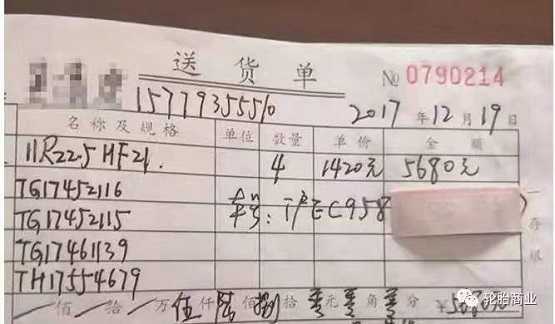 送货单
№ 0790214
15779355510
2017 年 12 月 19 日
名称及规格 单位 数量 单价 金额
11R22.5 HF21. 4 1420元 5680元
TG17452116
TG17452115 车号:
TG17461139
TH17554679
一存根
佰 拾 万 伍 仟 陆 佰 捌 拾 零 元 零 角 零 分 ¥
轮胎商业